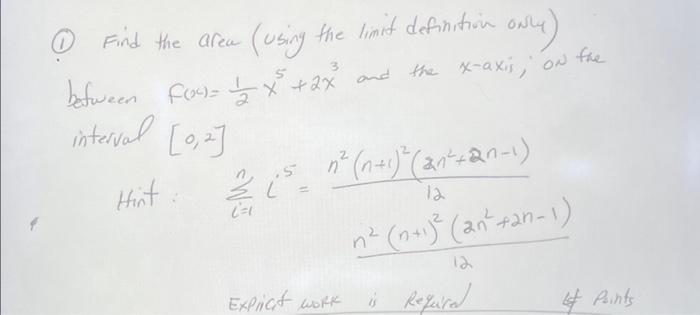 ① Find the area (using the limit definition only)
between f(x)= 1/2 x^5 + 2x^3 and the x-axis, on the
interval [0,2]
Hint: n Σ i=1 i^5 = n^2 (n+1)^2 (2n^2+2n-1) / 12
n^2 (n+1)^2 (2n^2+2n-1) / 12
Explicit work is Required Points